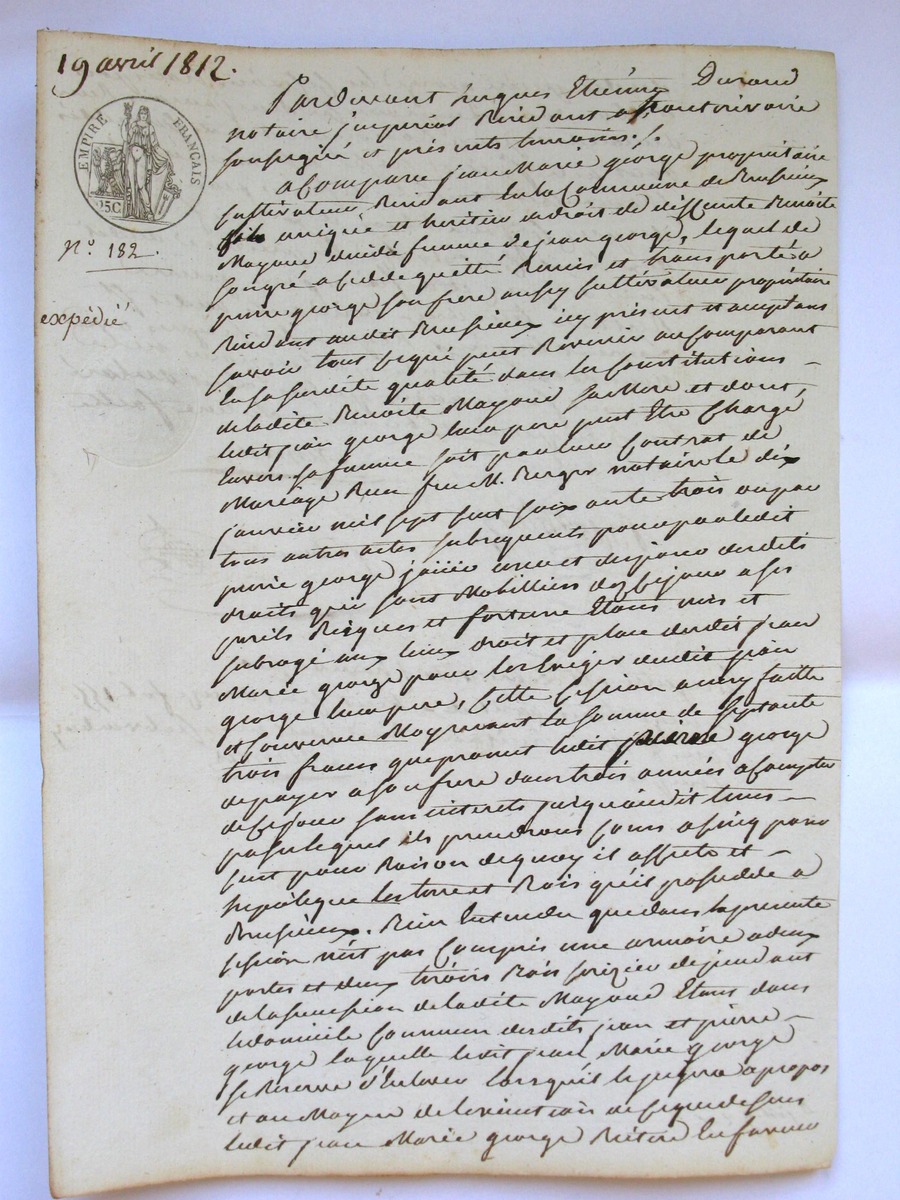 19 avril 1812.
Pardevant hugues Etienne Durand
notaire imperial Residant a
soussigné et présents temoins./.
EMPIRE FRANÇAIS
25C
a Comparu jean Marie géorge propriétaire
Cultivateur, Residant En la Commune de Brussieux
fils unique et heritier de droit de deffunte Benoite
N.º 182.
Mayoud décidé femme de jean george, lequel de
son gré a cédé quitté Remis et transporté a
pierre george son frere aussy Cultivateur propriétaire
expédié
Residant audit Brussieux icy présent et acceptant
savoir tout ce qui peut Revenir au Comparant
En sa susdite qualité dans les Constitutions
de ladite Benoite Mayoud sa Mere et dont
ledit jean george leur pere peut Etre Chargé
Envers sa femme soit par leur Contrat de
Mariage Reçu feu M. Berger notaire le dix
janvier mil sept cent soixante trois ou par
tous autres actes subsequents pour par ledit
pierre george jouir user et disposer desdits
droits qui sont Mobilliers dez ce jour a ses
perils Risques et fortune Etant mis et
subrogé aux lieux droit et place dudit jean
Marie george pour les Exiger dudit jean
george leur pere, Cette Cession a Eté faitte
et Convenue Moyennant la somme de septante
trois francs que promet ledit pierre george
de payer a son frere dans trois années a Compter
de ce jour sans interets jusqu'audit tems
passé lequel ils prendront Cours a cinq pour
cent pour Raison de quoy il affecte et
hepoteque les terre et Bois qu'il possedde a
Brussieux. Bien Entendu que dans la presente
cession n'est pas Compris une armoire a deux
portes et deux tiroirs Bois cerizier dependant
de la succession de ladite Mayoud Etant dans
le domicile Commun desdits jean et pierre
george laquelle ledit jean Marie george
se Reserve d'Enlever lorsqu'il le jugera apropos
et au Moyen de l'exécution de ce que dessus
ledit jean Marie george En faveur